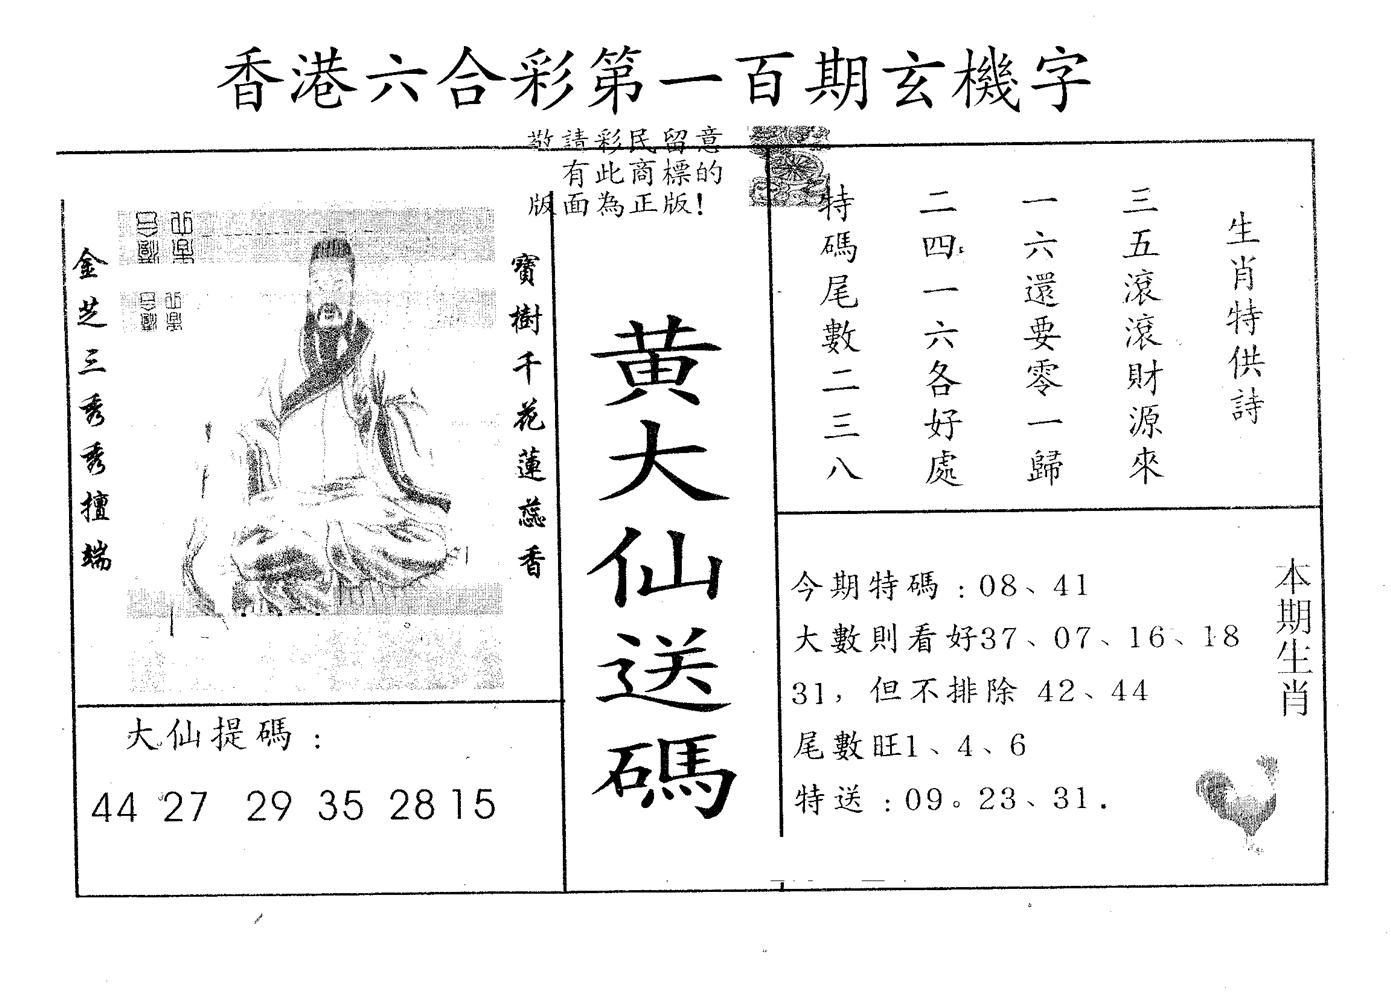 香港六合彩第一百期玄機字
敬請彩民留意
有此商標的
版面為正版!
寶樹千花蓮蕊香
金芝三秀秀擅端
大仙提碼:
44 27 29 35 28 15
黄大仙送碼
生肖特供詩
三五滾滾財源來
一六還要零一歸
二四一六各好處
特碼尾數二三八
今期特碼:08、41
大數則看好37、07、16、18
31,但不排除 42、44
尾數旺1、4、6
特送:09。23、31.
本期生肖